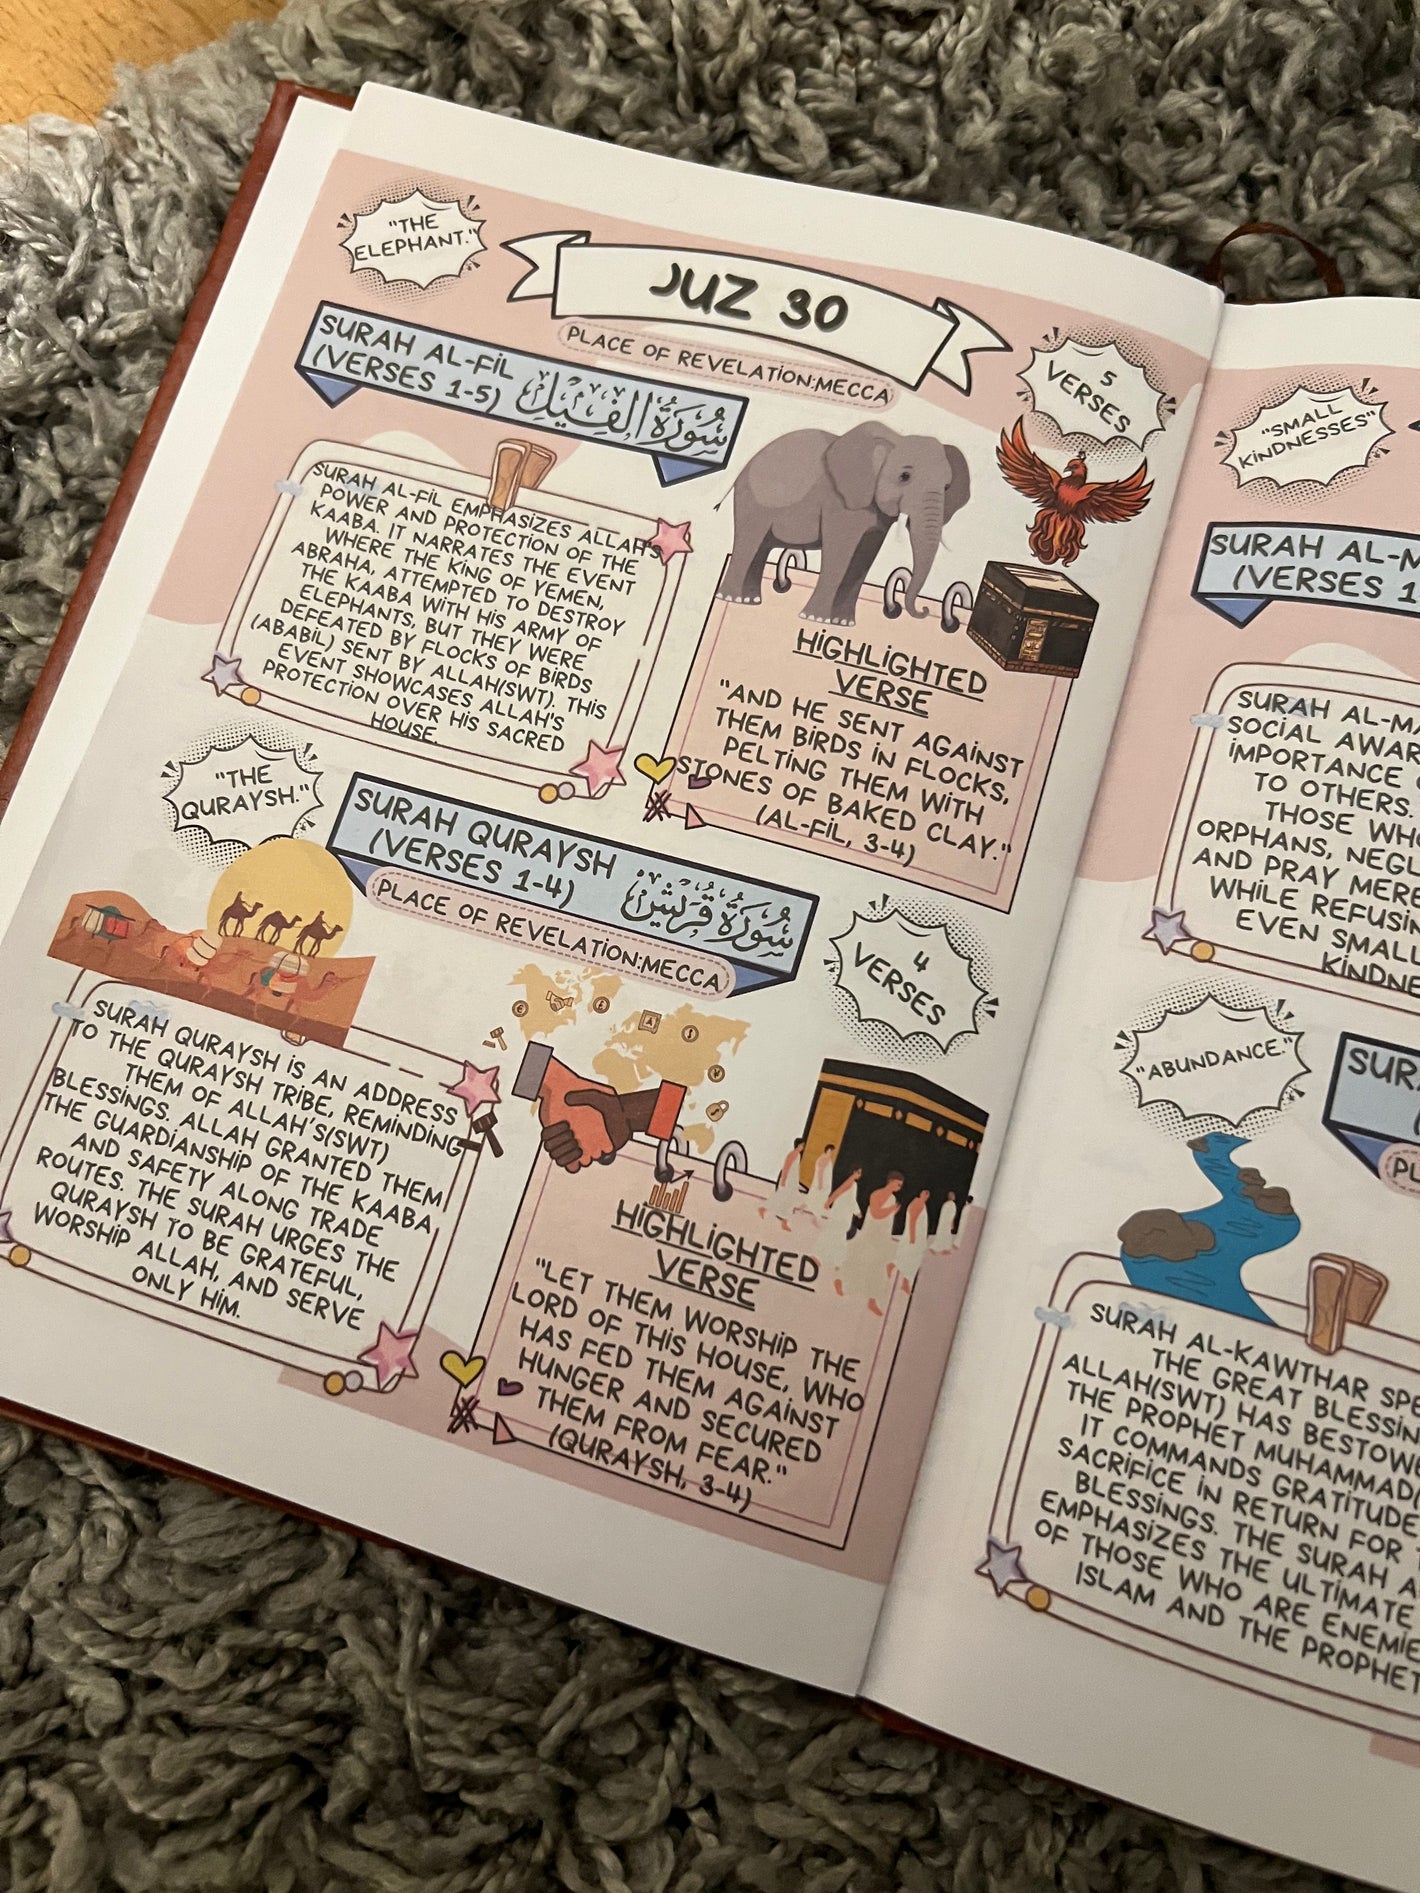 "THE
ELEPHANT."
JUZ 30
PLACE OF REVELATION:MECCA
5
VERSES
SURAH AL-FİL
(VERSES 1-5)
سُورَةُ الْفِيلِ
SURAH AL-FİL EMPHASİZES ALLAH'S
POWER AND PROTECTİON OF THE
KAABA. İT NARRATES THE EVENT
WHERE THE KİNG OF YEMEN,
ABRAHA, ATTEMPTED TO DESTROY
THE KAABA WİTH HİS ARMY OF
ELEPHANTS, BUT THEY WERE
DEFEATED BY FLOCKS OF BİRDS
(ABABİL) SENT BY ALLAH(SWT). THİS
EVENT SHOWCASES ALLAH'S
PROTECTİON OVER HİS SACRED
HOUSE.
HİGHLİGHTED
VERSE
"AND HE SENT AGAİNST
THEM BİRDS İN FLOCKS,
PELTİNG THEM WİTH
STONES OF BAKED CLAY."
(AL-FİL, 3-4)
"THE
QURAYSH."
SURAH QURAYSH
(VERSES 1-4)
سُورَةُ قُرَيْشٍ
PLACE OF REVELATİON:MECCA
4
VERSES
SURAH QURAYSH İS AN ADDRESS
TO THE QURAYSH TRİBE, REMİNDİNG
THEM OF ALLAH'S(SWT)
BLESSİNGS. ALLAH GRANTED THEM
THE GUARDİANSHİP OF THE KAABA,
AND SAFETY ALONG TRADE
ROUTES. THE SURAH URGES THE
QURAYSH TO BE GRATEFUL,
WORSHİP ALLAH, AND SERVE
ONLY HİM.
HİGHLİGHTED
VERSE
"LET THEM WORSHİP THE
LORD OF THİS HOUSE, WHO
HAS FED THEM AGAİNST
HUNGER AND SECURED
THEM FROM FEAR."
(QURAYSH, 3-4)
"SMALL
KİNDNESSES"
SURAH AL-M
(VERSES 1
SURAH AL-MA
SOCİAL AWAR
İMPORTANCE
TO OTHERS.
THOSE WHO
ORPHANS, NEGL
AND PRAY MERE
WHİLE REFUSİN
EVEN SMALL
KİNDNE
"ABUNDANCE."
SUR
PL
SURAH AL-KAWTHAR SPE
THE GREAT BLESSİN
ALLAH(SWT) HAS BESTOWE
THE PROPHET MUHAMMAD(
İT COMMANDS GRATİTUDE
SACRİFİCE İN RETURN FOR
BLESSİNGS. THE SURAH A
EMPHASİZES THE ULTİMATE
OF THOSE WHO ARE ENEMİE
İSLAM AND THE PROPHET